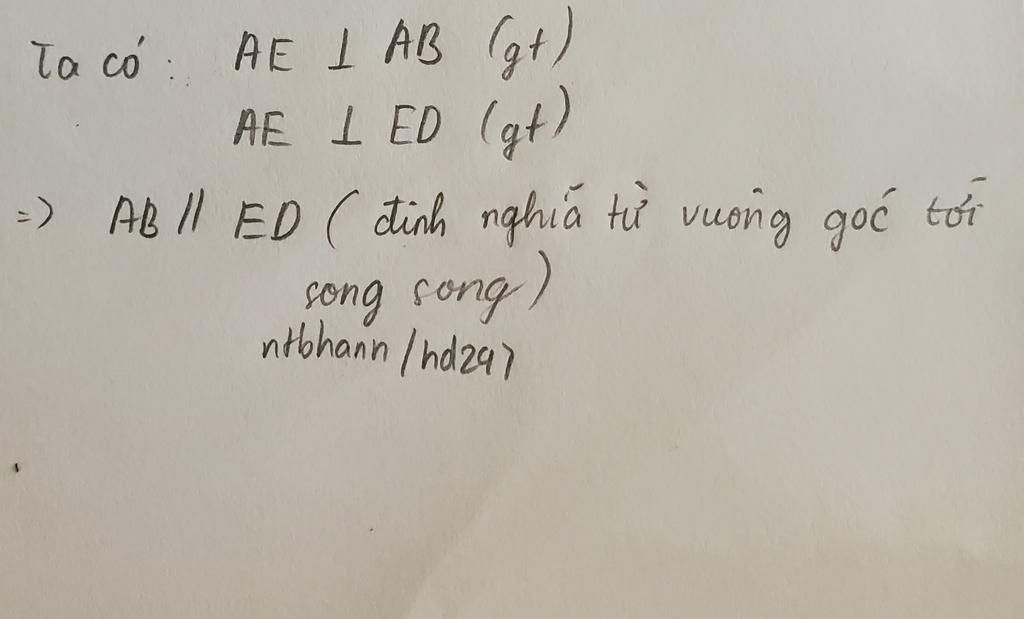 Ta có: AE ⊥ AB (gt)
AE ⊥ ED (gt)
=> AB // ED ( định nghĩa từ vuông góc tới
song song)
ntbhann/hd297